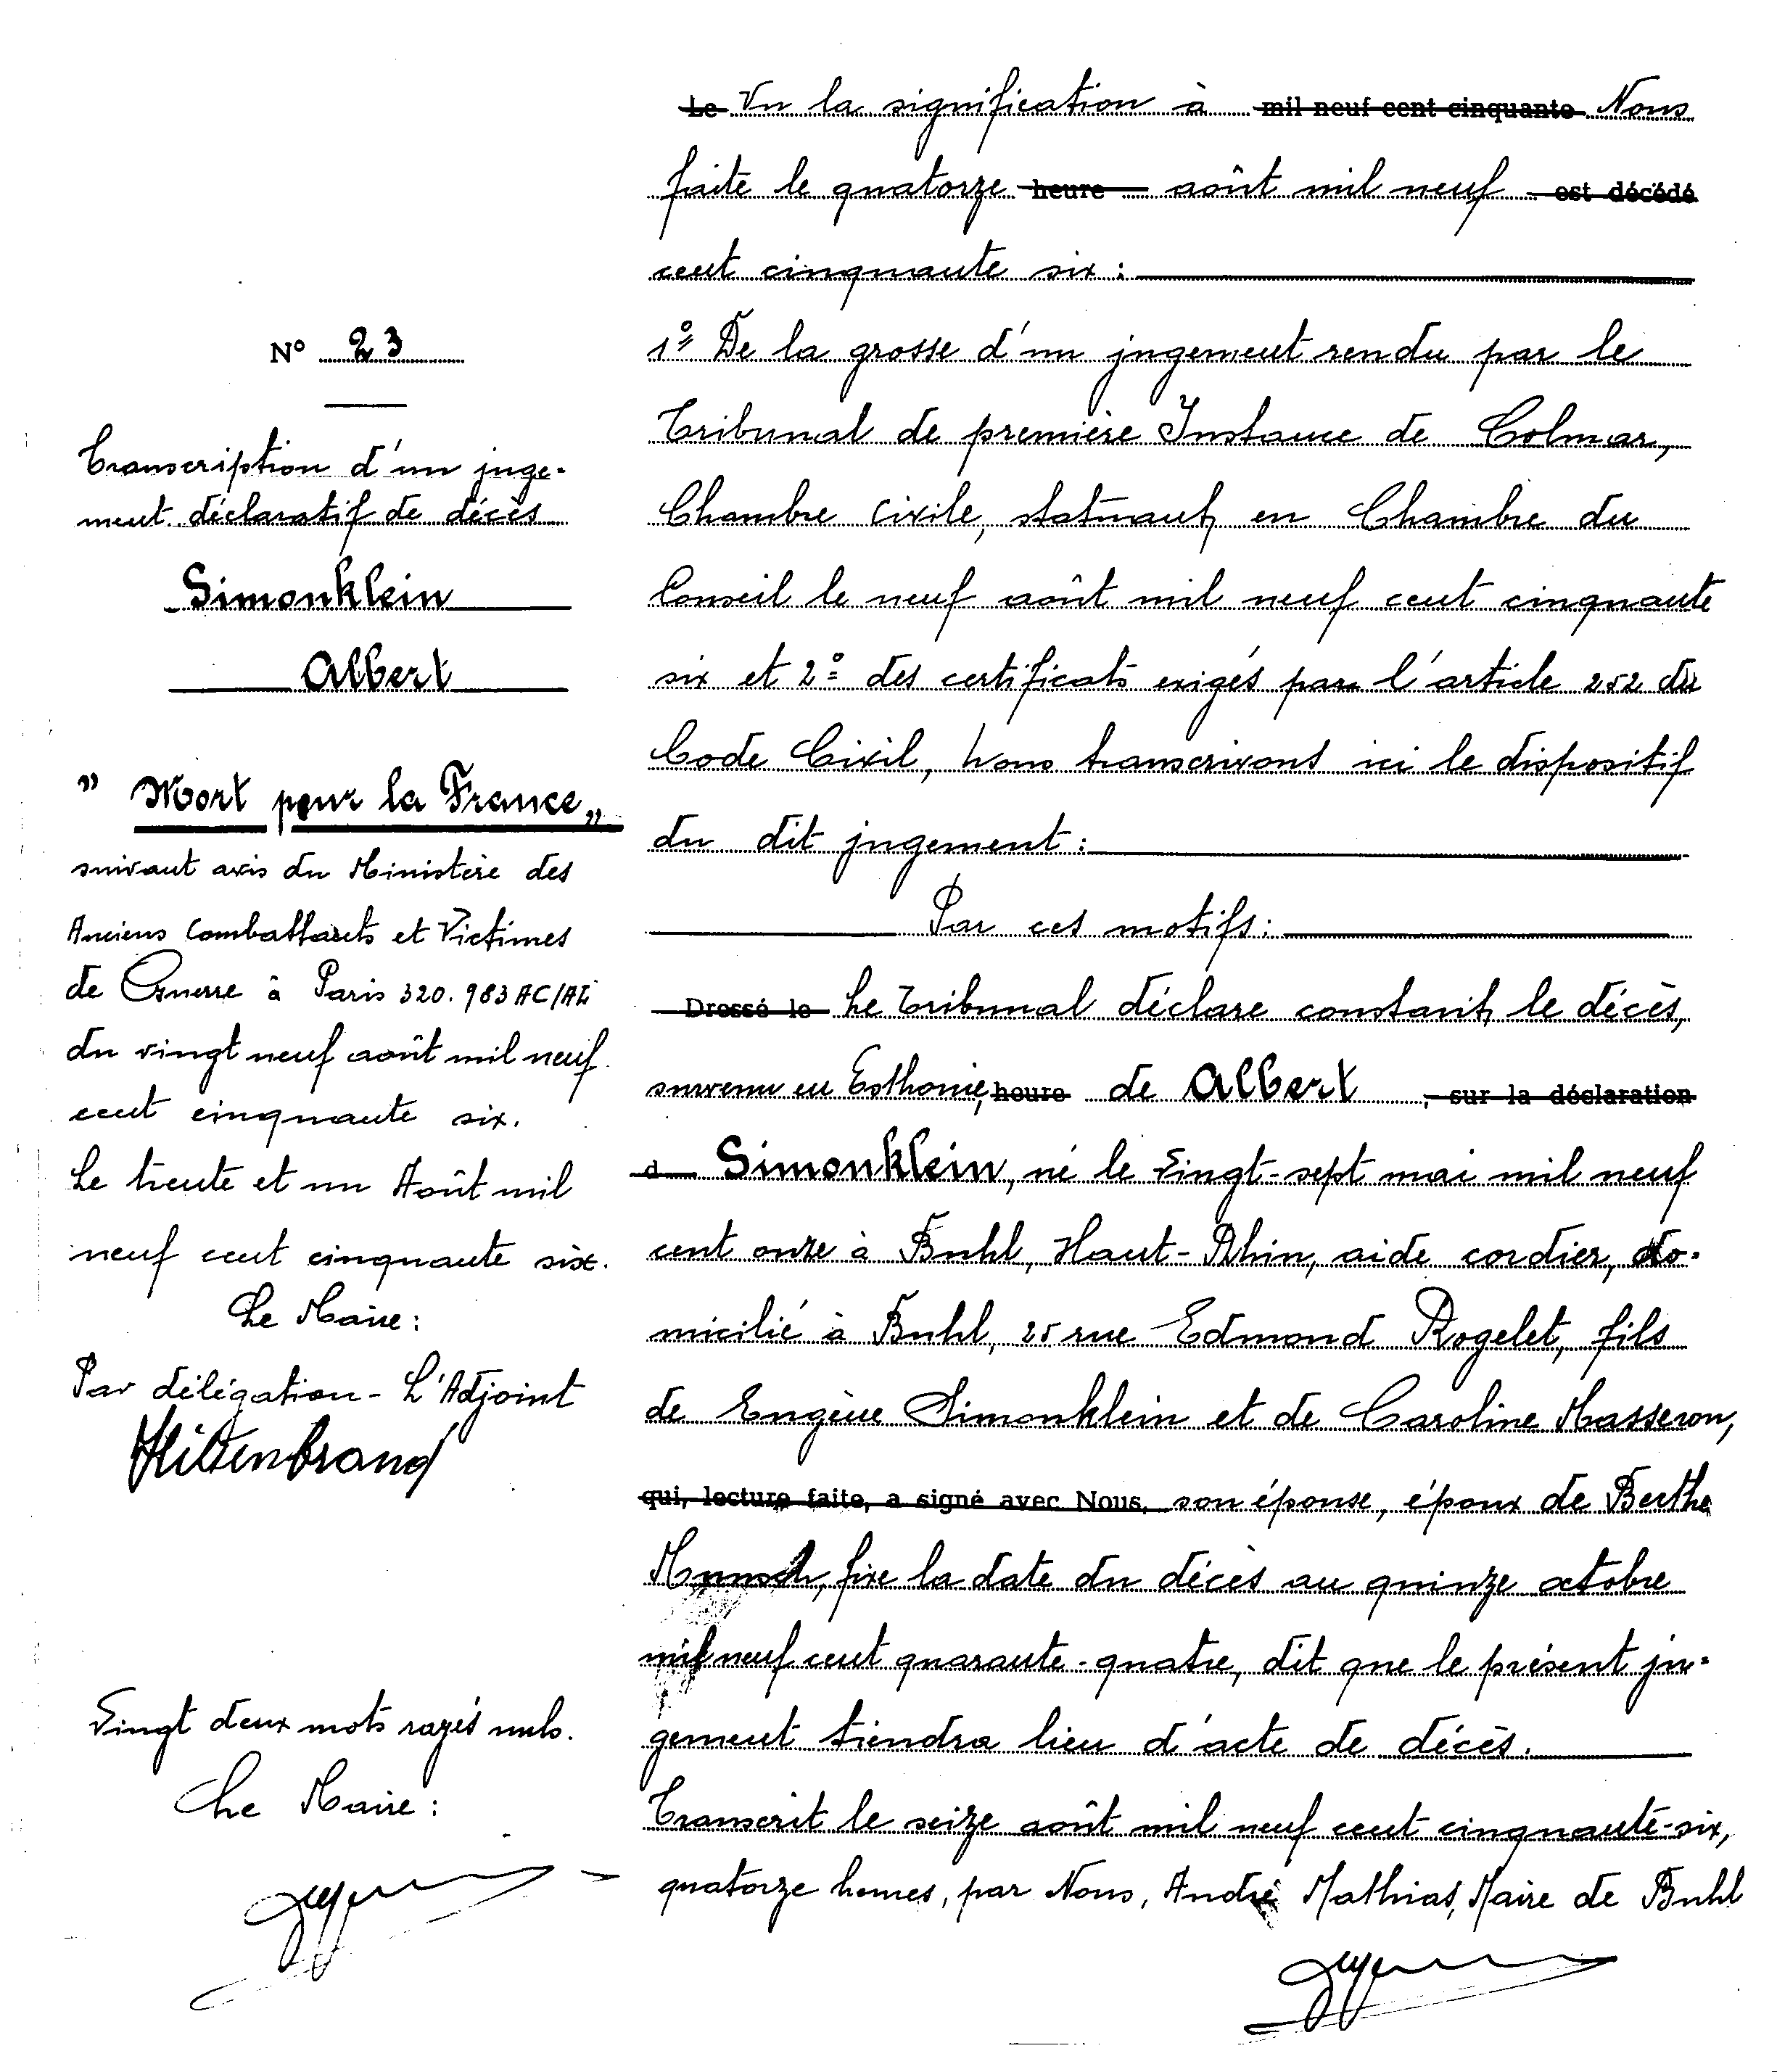 N° 23
Transcription d'un juge-
ment déclaratif de décès
Simonklein
Albert
" Mort pour la France "
suivant avis du Ministère des
Anciens Combattants et Victimes
de Guerre à Paris 320.983 AC/AL
du vingt neuf août mil neuf
cent cinquante six.
Le trente et un Août mil
neuf cent cinquante six.
Le Maire :
Par délégation - L'Adjoint
Hiltenbrand
Vingt deux mots rayés nuls.
Le Maire :
Le Vu la signification à mil neuf cent cinquante Nous
faite le quatorze heure août mil neuf est décédé
cent cinquante six :
1° De la grosse d'un jugement rendu par le
Tribunal de première Instance de Colmar,
Chambre Civile, statuant en Chambre du
Conseil le neuf août mil neuf cent cinquante
six et 2° des certificats exigés par l'article 252 du
Code Civil, Nous transcrivons ici le dispositif
du dit jugement :
Par ces motifs :
Dressé le Le Tribunal déclare constant le décès,
survenu en Esthonie, heure de Albert , sur la déclaration
d Simonklein, né le vingt-sept mai mil neuf
cent onze à Buhl, Haut-Rhin, aide cordier, do-
micilié à Buhl, 25 rue Edmond Rogelet, fils
de Eugène Simonklein et de Caroline Masseron,
qui, lecture faite, a signé avec Nous, son épouse, époux de Berthe
Munsch, fixe la date du décès au quinze octobre
mil neuf cent quarante-quatre, dit que le présent ju-
gement tiendra lieu d'acte de décès.
Transcrit le seize août mil neuf cent cinquante-six,
quatorze heures, par Nous, André Mathias, Maire de Buhl